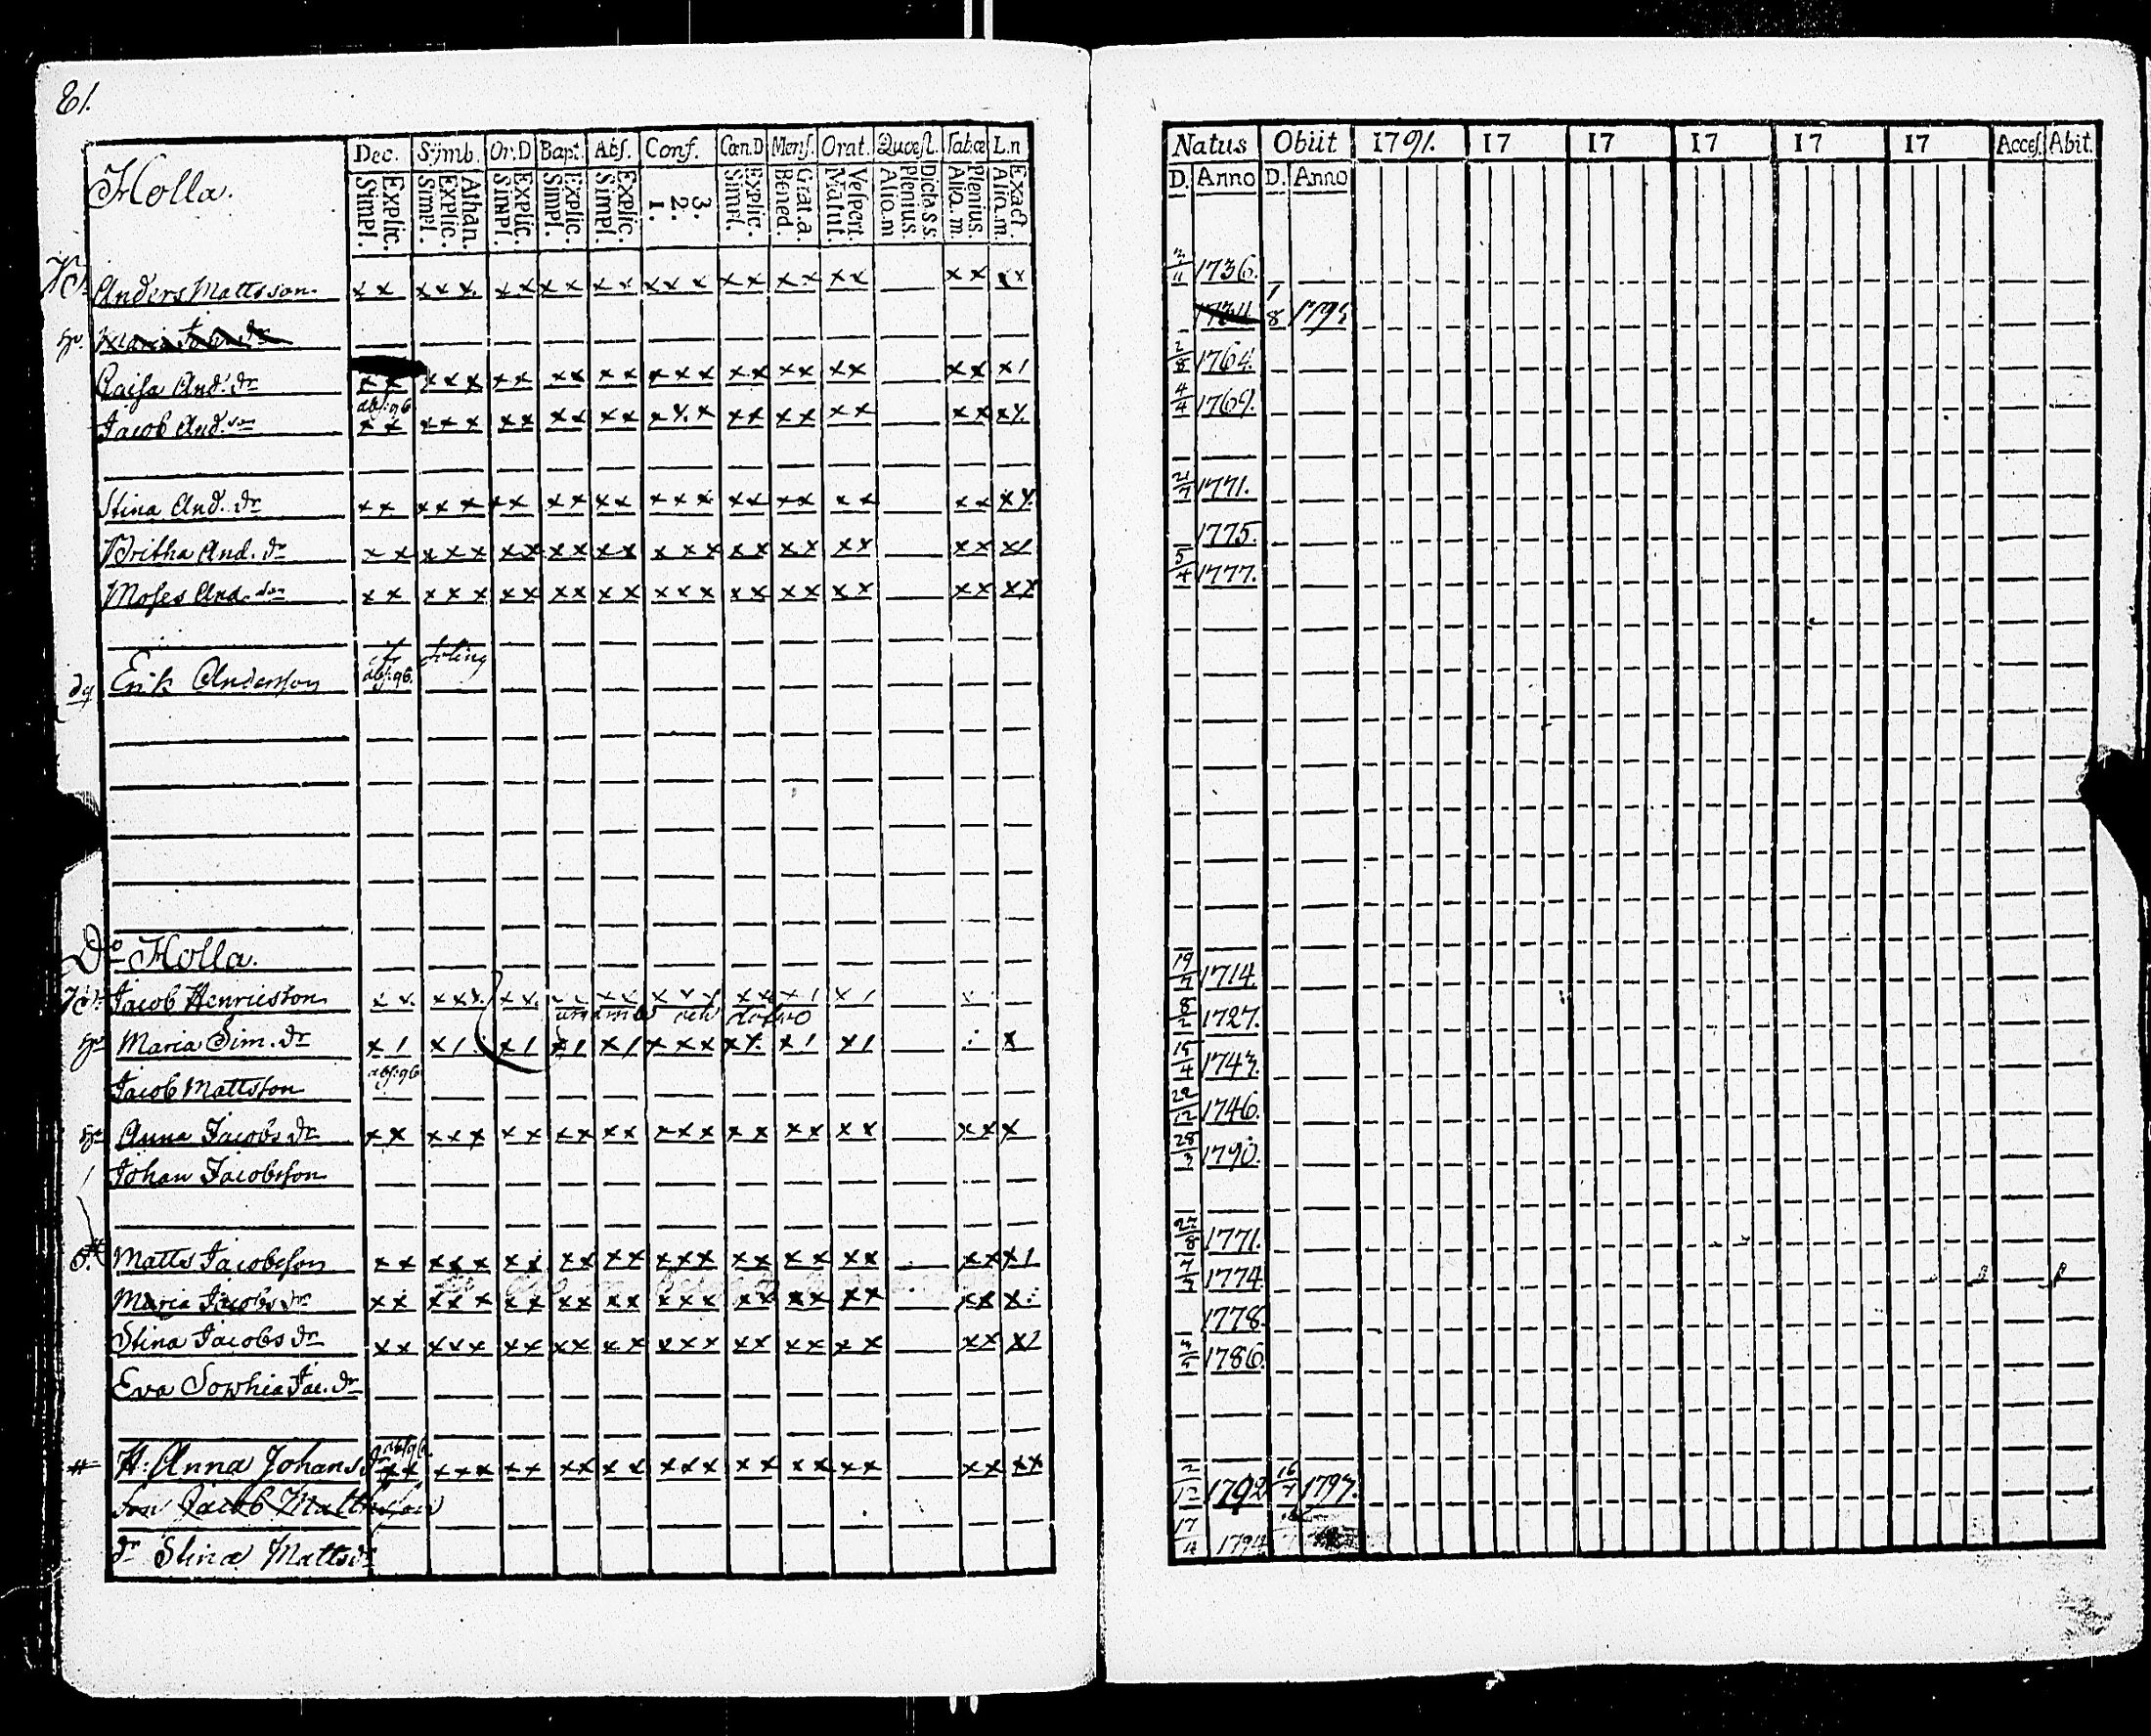 81.
Holla.
Dec. Symb. Or.D Bapt. Abs. Conf. Cœn.D Mens. Orat. Quæst. Tabæ L.n
Simpl. Explic. Simpl. Explic. Athan. Simpl. Explic. Simpl. Explic. Simpl. Explic. 1. 2. 3. Simpl. Explic. Bened. Grat.a. Matut. Vespert. Aliq.m Plenius. Dicta.s.s. Aliq.m. Plenius. Aliq.m. Exact.
Natus Obiit 1791. 17 17 17 17 17 Acces. Abit.
D. Anno D. Anno
Anders Mattsson x x x x x x x x x x x x x x x x x x x x x x x 1736.
Hu. Maria 1734 1 8 1795
Caisa And. dr x x x x x x x x x x x x x x x x x x x x x x 1 2/8 1764.
Jacob And. son abs: 96 x x x x x x x x x x x x x x x x x x x x x x x 4/4 1769.
Stina And. dr x x x x x x x x x x x x x x x x x x x x x x x 21/7 1771.
Britha And. dr x x x x x x x x x x x x x x x x x x x x x x 1 1775.
Moses And. son x x x x x x x x x x x x x x x x x x x x x x x 5/4 1777.
Erik Andersson abs: 96.
Do Holla.
Jacob Henricsson 19/7 1714.
Hu Maria Sim. dr x 1 x 1 x 1 x 1 x 1 x x x x x x 1 x 1 x 8/2 1727.
Jacob Mattsson abs: 96 15/4 1743.
Hu Anna Jacobs dr x x x x x x x x x x x x x x x x x x x x x x 22/12 1746.
Johan Jacobsson 28/3 1790.
Matts Jacobsson x x x x x x x x x x x x x x x x x x x x x x 1 27/8 1771.
Maria Jacobs dr x x x x x x x x x x x x x x x x x x x x x x 1774
Stina Jacobs dr x x x x x x x x x x x x x x x x x x x x x x 1 1778.
Eva Sophia Jac. dr 1786.
H. Anna Johans dr abs 96 x x x x x x x x x x x x x x x x x x x x x x x
son Jacob Mattsson 2/12 1792 16 1797.
dr Stina Matts dr 17 1794